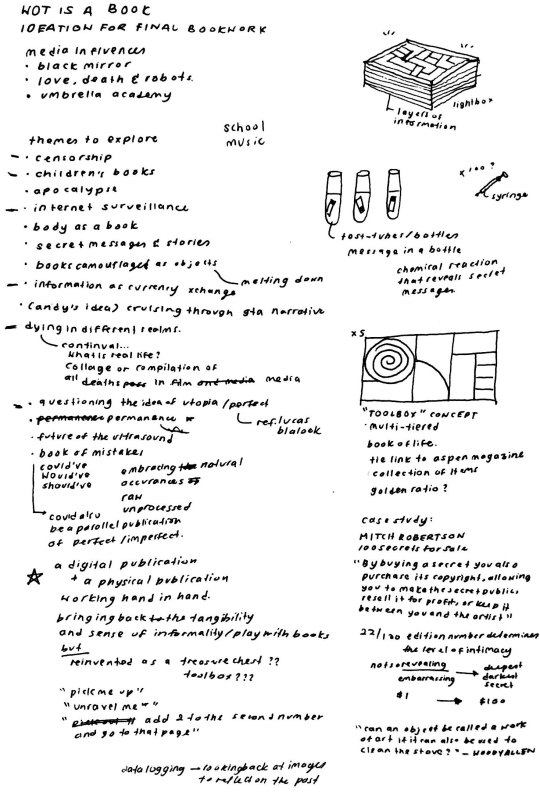 WOT IS A BOOK
IDEATION FOR FINAL BOOKWORK
media influences
• black mirror
• love, death & robots.
• umbrella academy
school
music
themes to explore
– • censorship
– • children's books
• apocalypse
– • internet surveillance
• body as a book
• secret messages & stories
• books camouflaged as objects
melting down
– • information as currency xchange
• (andy's idea) cruising through gta narrative
– dying in different realms.
continual...
what is real life?
collage or compilation of
all deaths pass in film and media media
– • questioning the idea of utopia/perfect
ref. lucas
blalock
• permanence permanence
• future of the ultrasound
• book of mistakes
could've
would've
should've
embracing the natural
occurances of
raw
unprocessed
could also
be a parallel publication
of perfect/imperfect.
a digital publication
+ a physical publication
working hand in hand.
bringing back to the tangibility
and sense of informality/play with books
but
reinvented as a treasure chest ??
toolbox ???
"pick me up"
"unravel me"
" add 2 to the second number
and go to that page"
data logging → looking back at images
to reflect on the past
lightbox
layers of
information
x100?
syringe
test-tubes/bottles
message in a bottle
chemical reaction
that reveals secret
messages.
x5
"TOOLBOX" CONCEPT
• multi-tiered
book of life.
tie link to aspen magazine
• collection of items
golden ratio?
case study:
MITCH ROBERTSON
100 secrets for sale
"By buying a secret you also
purchase its copyright, allowing
you to make the secret public,
resell it for profit, or keep it
between you and the artist"
22/100 edition number determines
the level of intimacy
not so revealing
embarrassing
deepest
darkest
secret
$1 → $100
"can an object be called a work
of art if it can also be used to
clean the stove?" – WOODY ALLEN